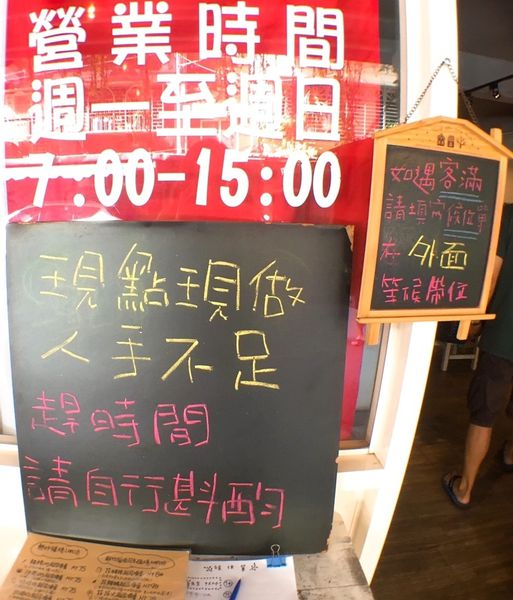 營業時間
週 至週日
7:00-15:00
現點現做
人手不足
趕時間
請自行斟酌
如遇客滿
請填寫候位單
在 外面
等候帶位